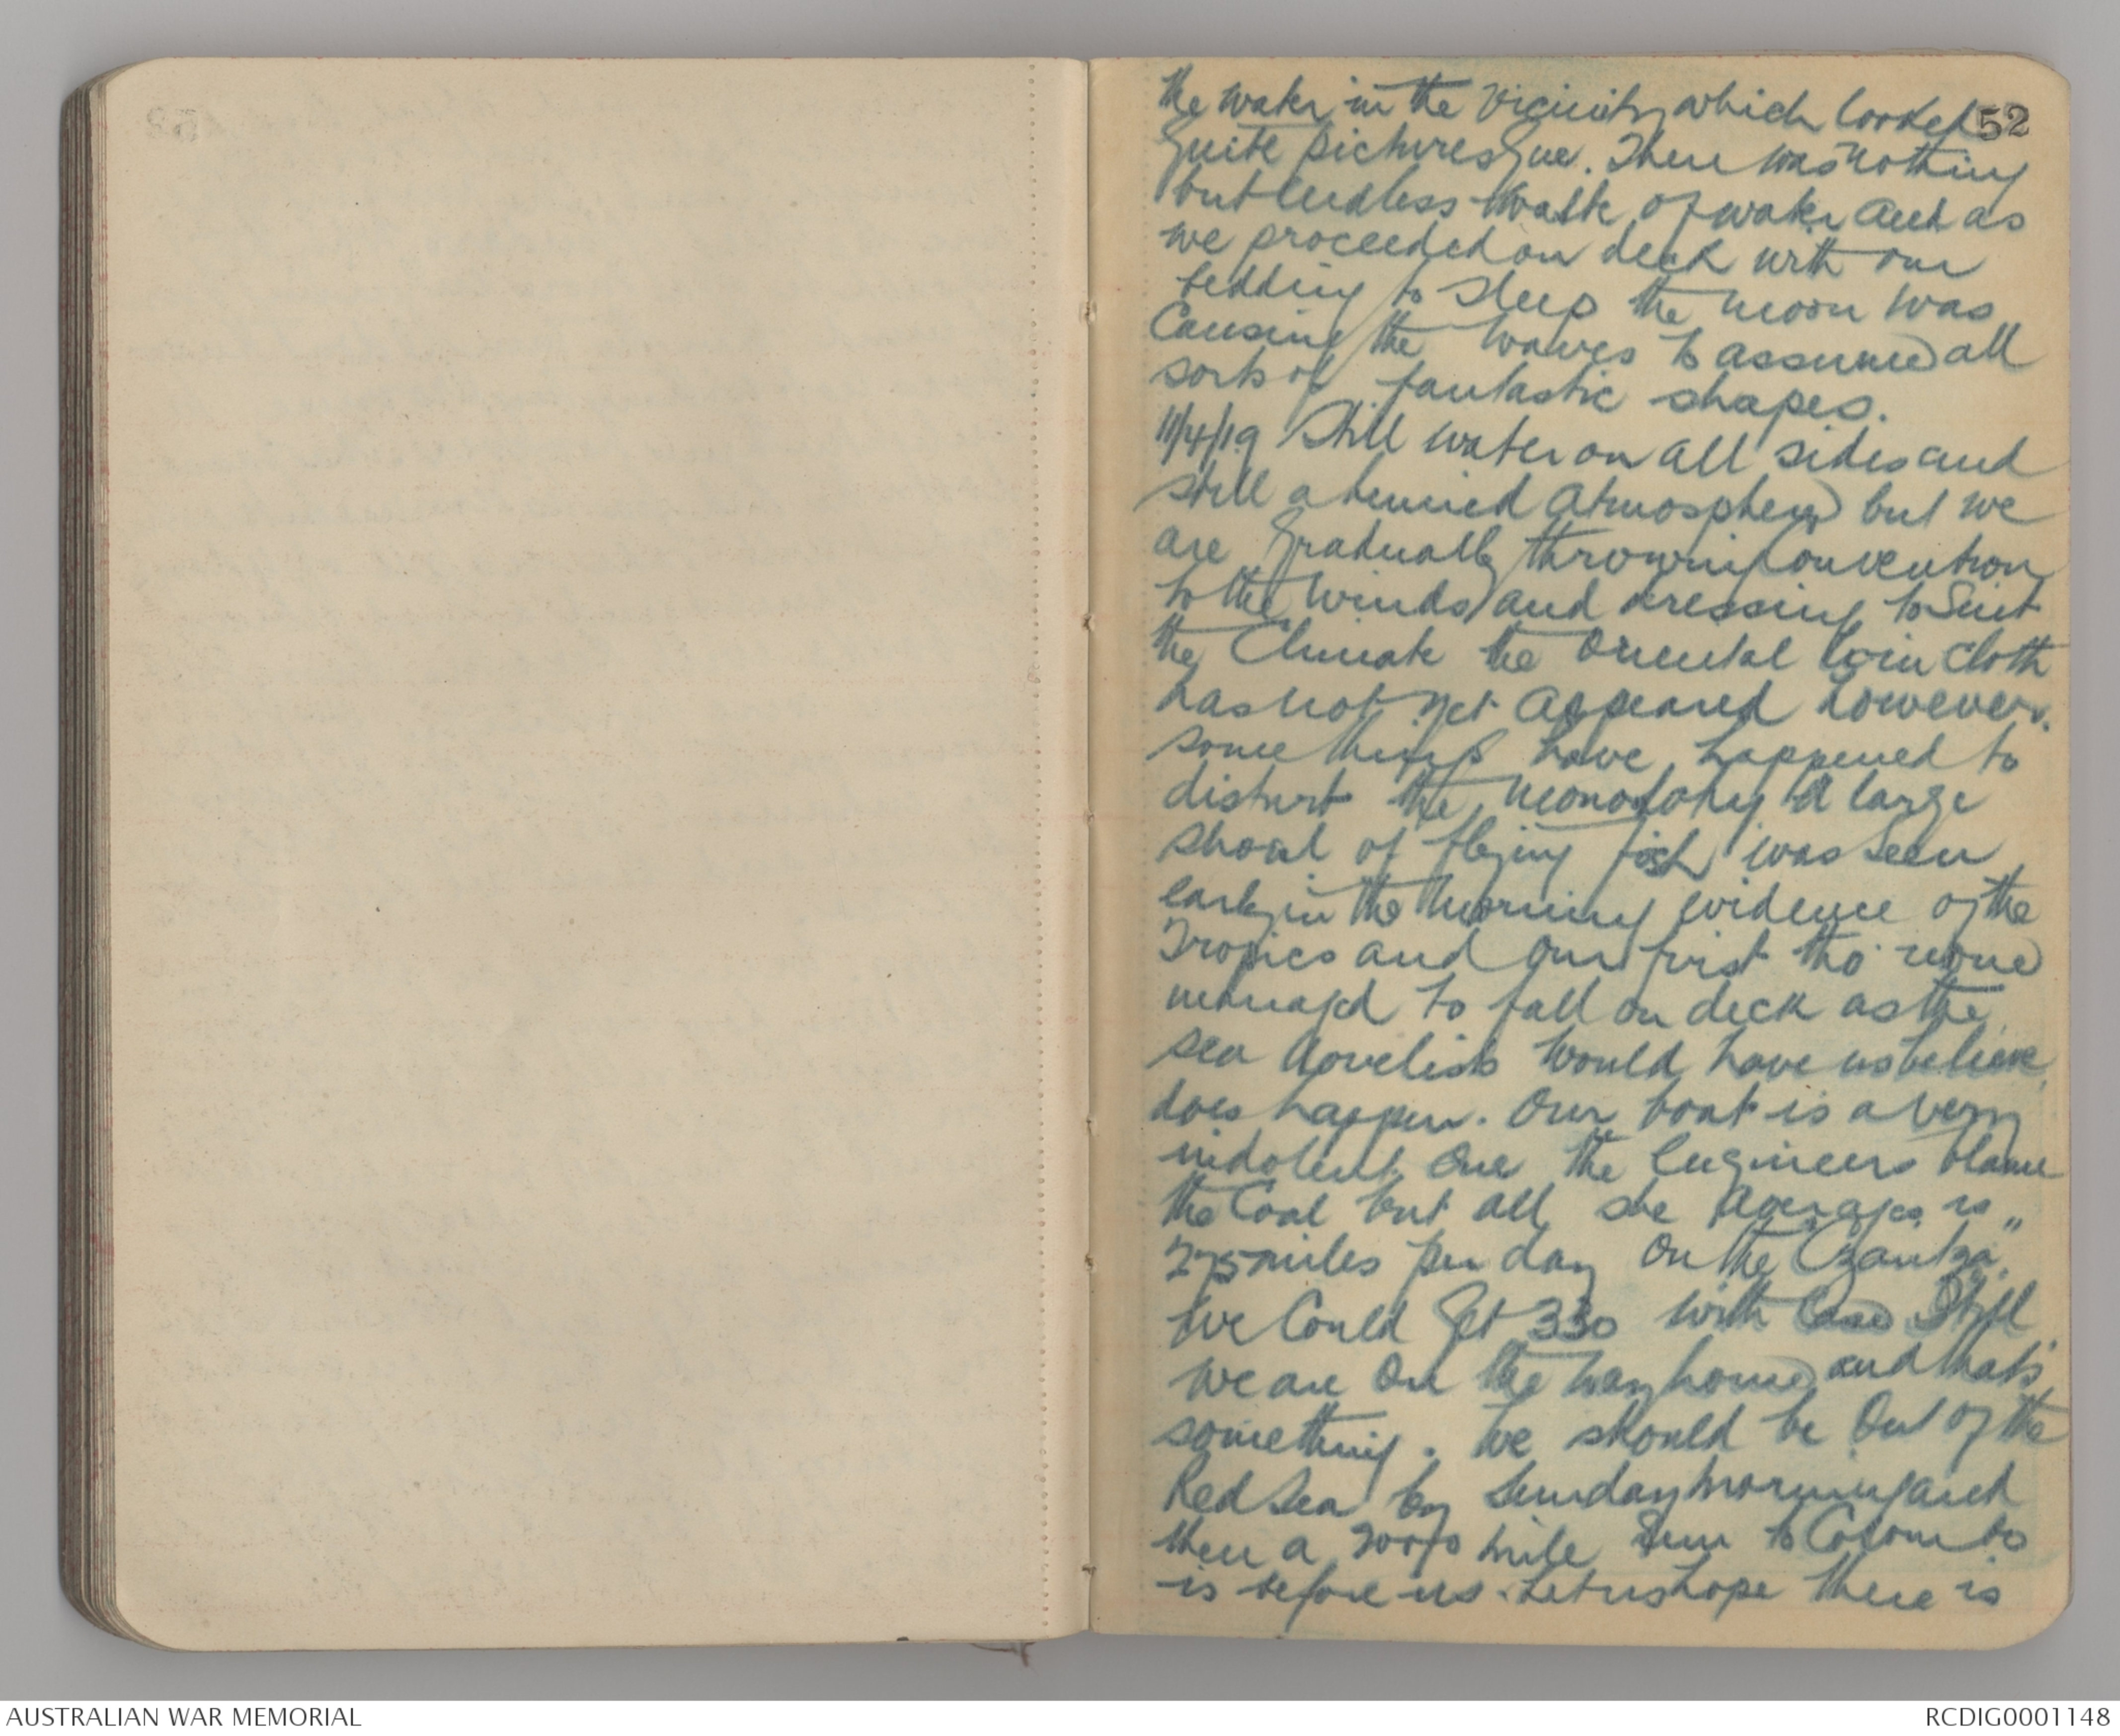 52
the water in the vicinity which looked
quite picturesque. There was nothing
but endless waste of water and as
we proceeded on deck with our
bedding to sleep the moon was
causing the waves to assume all
sorts of fantastic shapes.
11/4/19 Still water on all sides and
still a humid atmosphere but we
are gradually throwing convention
to the winds and dressing to suit
the Climate the oriental loin cloth
has not yet appeared however.
some things have happened to
disturb the monotony A large
shoal of flying fish was seen
early in the morning evidence of the
Tropics and our first tho' none
managed to fall on deck as the
sea novelists would have us believe
does happen. Our boat is a very
indolent one the Engineers blame
the Coal but all she averages is
275 miles per day On the "Czaritza"
we Could get 330 with ease Still
we are on the way home and thats
something. We should be out of the
Red Sea by Sunday morning and
then a mile run to Colombo
is before us. Let us hope there is
AUSTRALIAN WAR MEMORIAL
RCDIG0001148